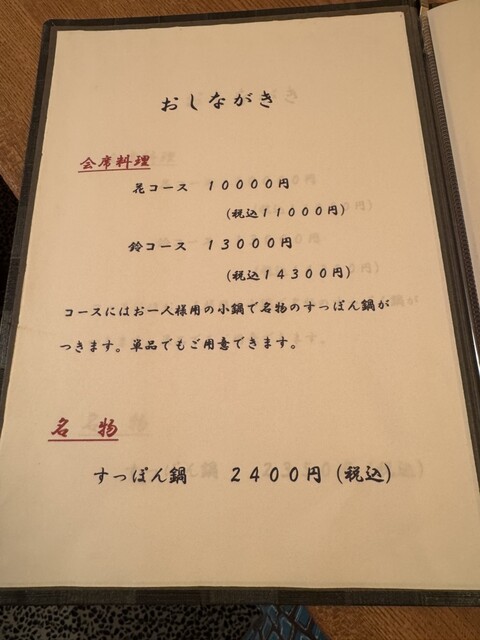 おしながき
会席料理
花コース　１００００円
（税込１１０００円）
鈴コース　１３０００円
（税込１４３００円）
コースにはお一人様用の小鍋で名物のすっぽん鍋が
つきます。単品でもご用意できます。
名　物
すっぽん鍋　２４００円（税込）